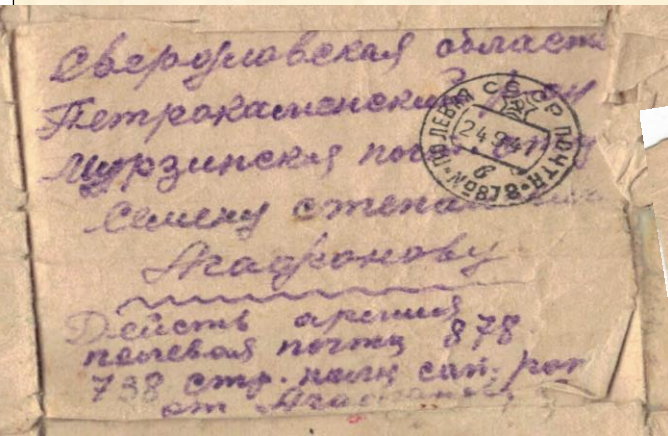 Свердловская област
Петрокаменский
Мурзинская
Семену степа
Агафонову
Действ армия
полевая почта 878
738 стр. полк сап. рот
от
ПОЛЕВАЯ СССР ПОЧТА
24 9 41
в
№878